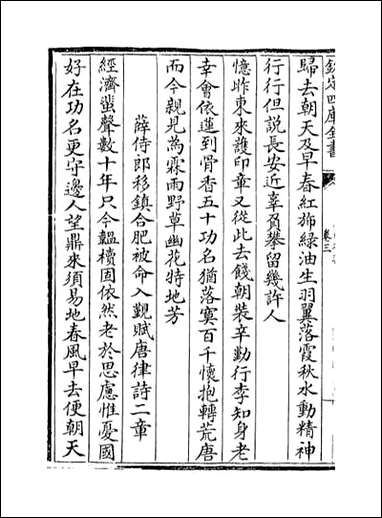 欽定四庫全書
卷三
歸去朝天及早春紅斾綠油生羽翼落霞秋水動精神
行行但說長安近辜負攀留幾許人
憶昨東來護印章又從此去餞朝裝辛勤行李知身老
幸會依蓮到骨香五十功名猶落寞百千懷抱轉荒唐
而今親見為霖雨野草幽花特地芳
薛侍郎移鎮合肥被命入覲賦唐律詩二章
經濟蜚聲數十年只今韞櫝固依然老於思慮惟憂國
好在功名更守邊人望鼎來須易地春風早去便朝天